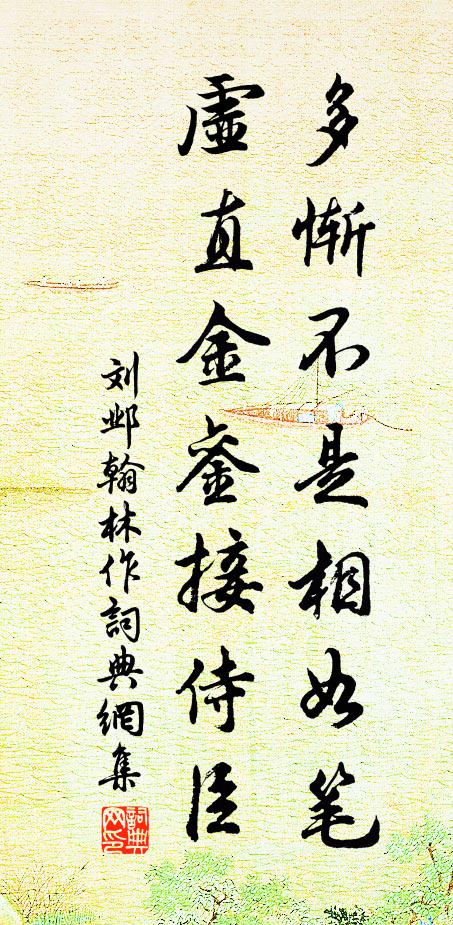 多惭不是相如笔
虚直金銮接侍臣
刘邺翰林作詞典網集
詞典
网印